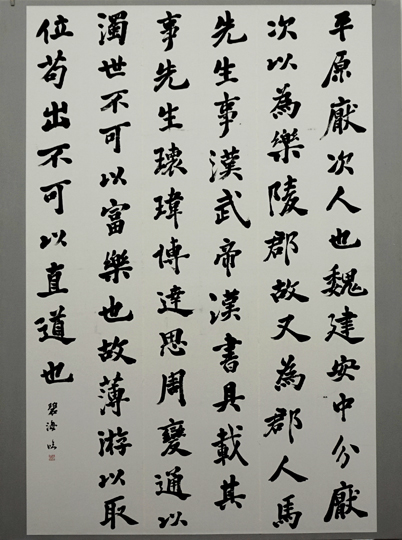 平原厭次人也魏建安中分厭
次以為樂陵郡故又為郡人馬
先生事漢武帝漢書具載其
事先生瓌瑋博達思周變通以
濁世不可以富樂也故薄游以取
位苟出不可以直道也
碧海